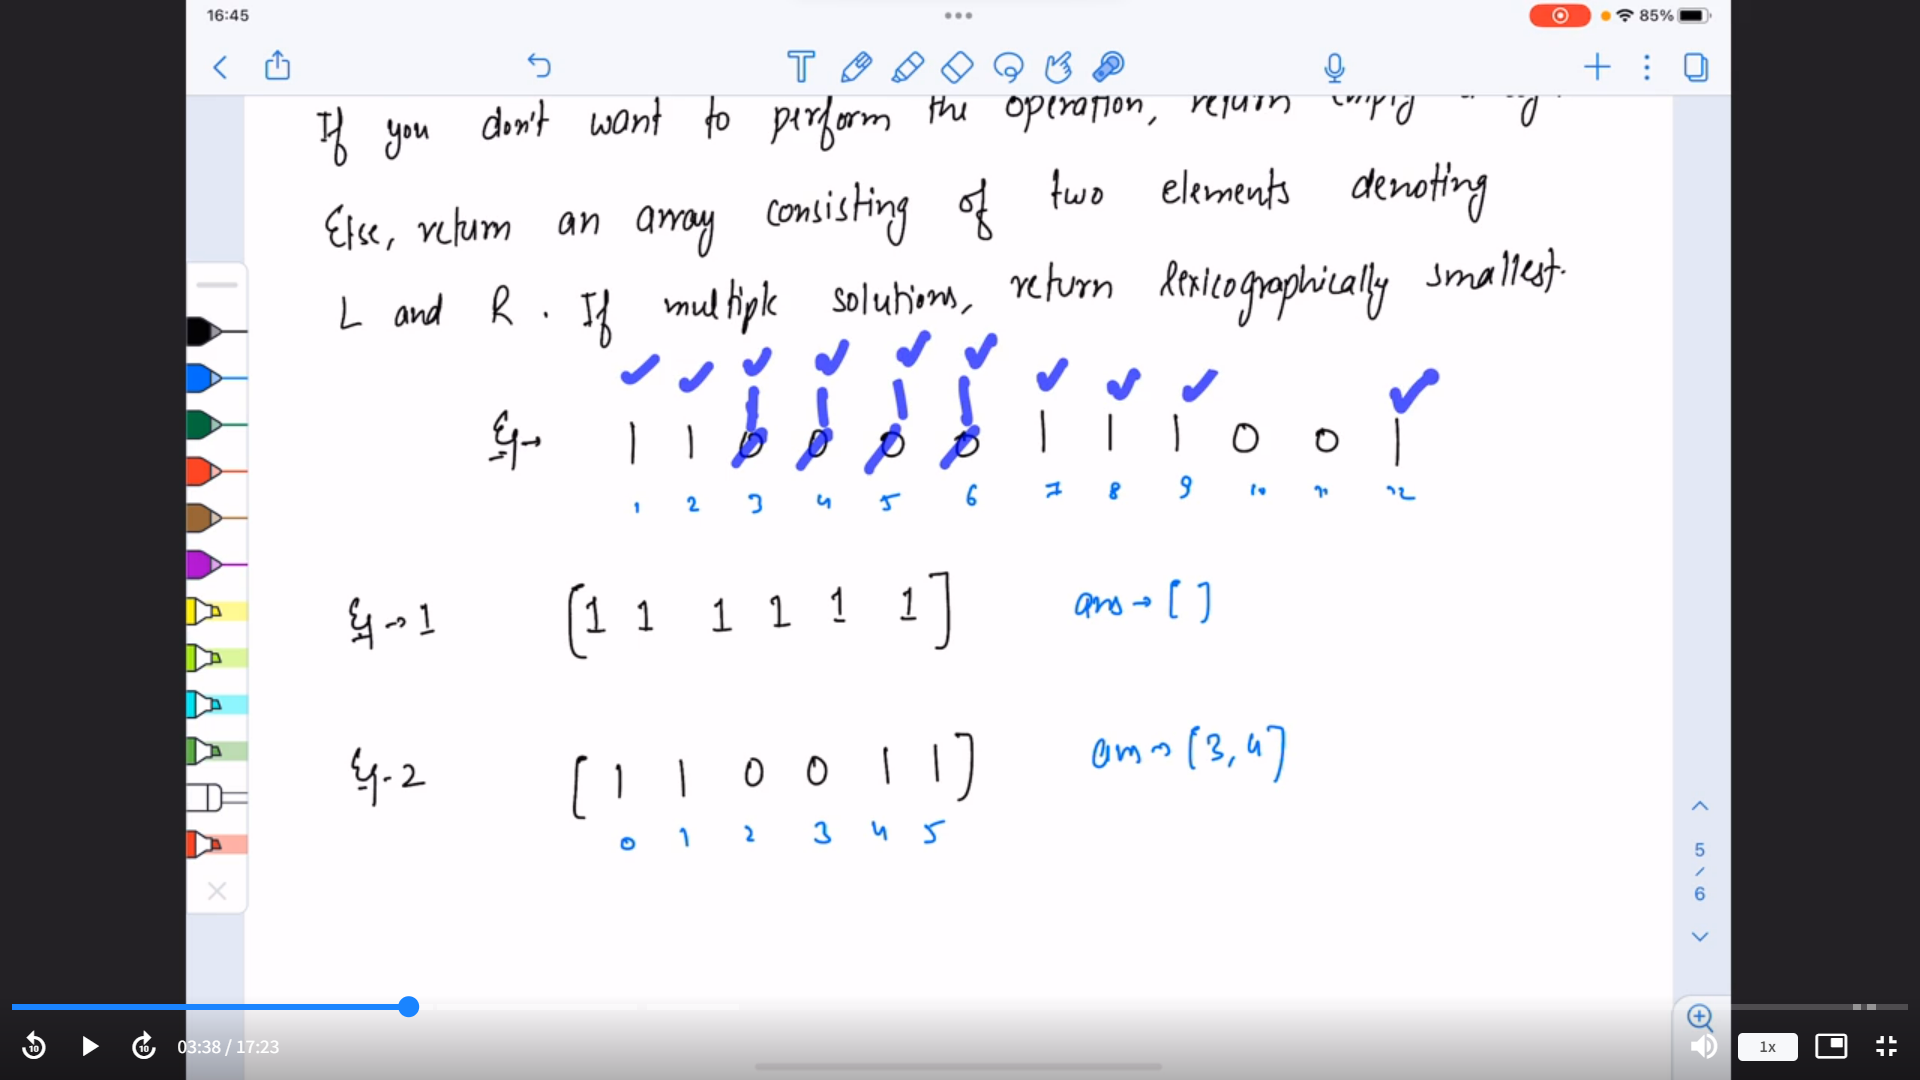 16:45
85%
If you don't want to perform the operation, return empty
Else, return an array consisting of two elements denoting
L and R. If multiple solutions, return lexicographically smallest.
Eg → 1 1 0 0 0 0 1 1 1 0 0 1
1 1 1 1
1 2 3 4 5 6 7 8 9 10 11 12
Eg → 1 [1 1 1 1 1 1] ans → [ ]
Eg - 2 [1 1 0 0 1 1] ans → [3, 4]
0 1 2 3 4 5
5
/
6
10 10 03:38 / 17:23 1x